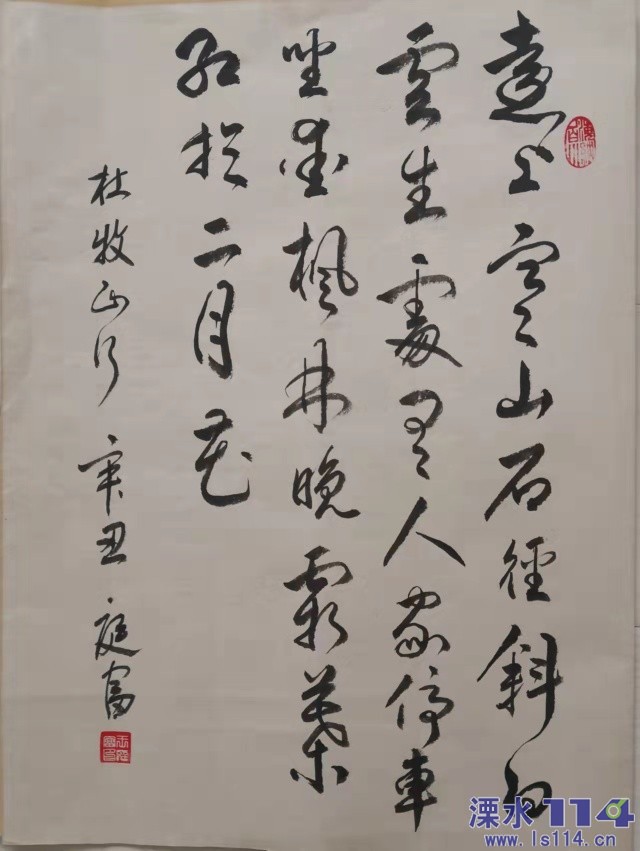 遠上寒山石徑斜白
雲生處有人家停車
坐愛楓林晚霜葉
紅於二月花
杜牧山行 辛丑 庭富
溧水114
www.ls114.cn